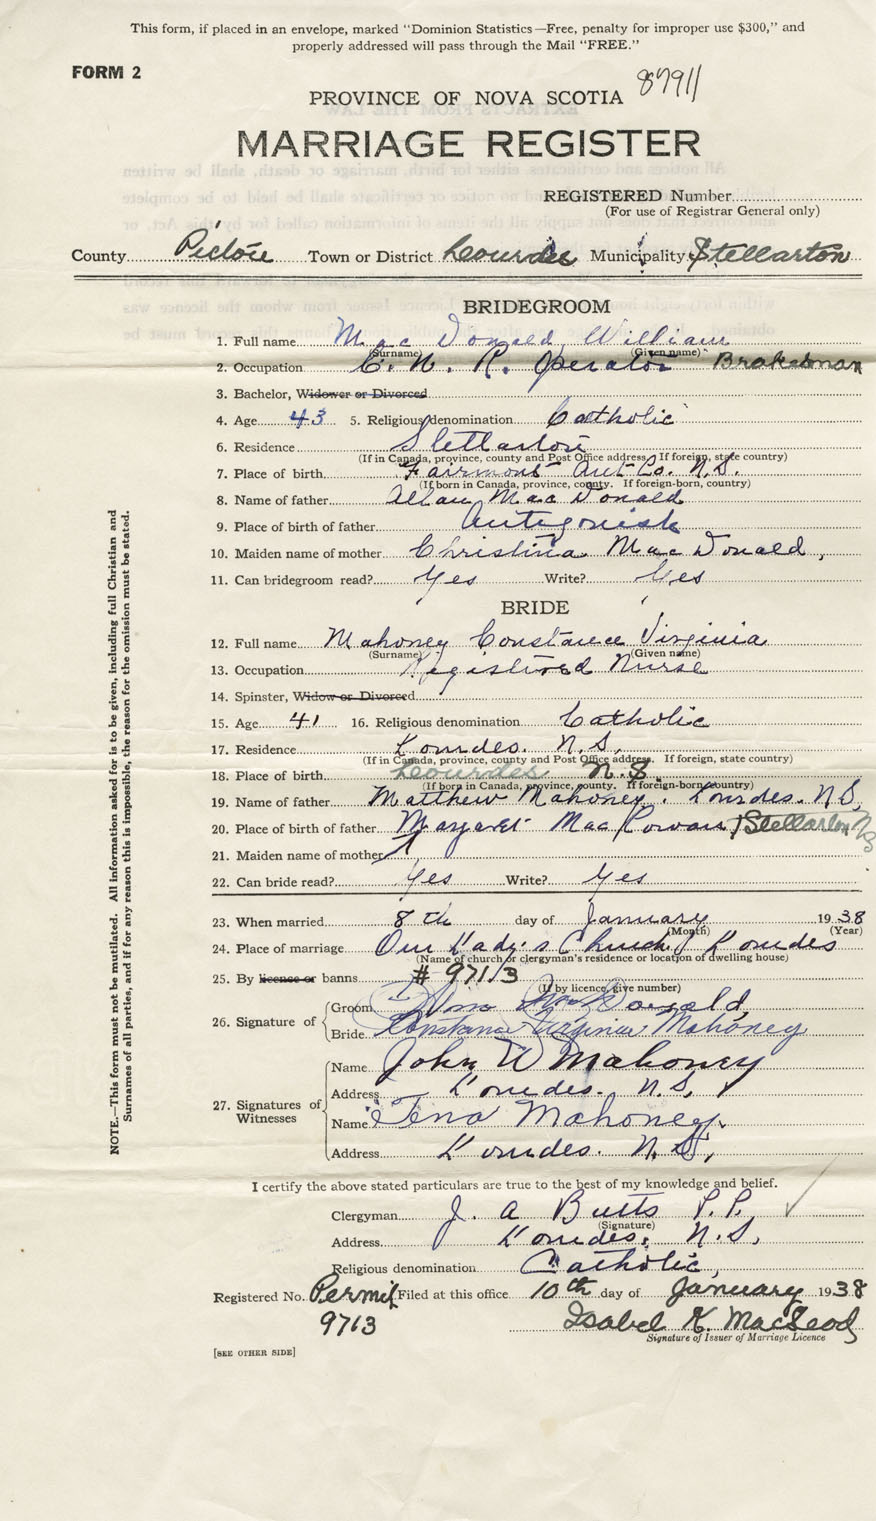 This form, if placed in an envelope, marked "Dominion Statistics—Free, penalty for improper use $300," and
properly addressed will pass through the Mail "FREE."
FORM 2
87911
PROVINCE OF NOVA SCOTIA
MARRIAGE REGISTER
REGISTERED Number
(For use of Registrar General only)
County Pictou Town or District Lourdes Municipality Stellarton
BRIDEGROOM
1. Full name Mac Donald, William
(Surname) (Given name)
2. Occupation C. N. R. Operator Brakeman
3. Bachelor, Widower or Divorced
4. Age 43 5. Religious denomination Catholic
6. Residence Stellarton
(If in Canada, province, county and Post Office address. If foreign, state country)
7. Place of birth Fairmont Ant. Co. N.S.
(If born in Canada, province, county. If foreign-born, country)
8. Name of father Allan Mac Donald
9. Place of birth of father Antigonish
10. Maiden name of mother Christina Mac Donald,
11. Can bridegroom read? Yes Write? Yes
BRIDE
12. Full name Mahoney Constance Virginia
(Surname) (Given name)
13. Occupation Registered Nurse
14. Spinster, Widow or Divorced.
15. Age 41 16. Religious denomination Catholic
17. Residence Lourdes. N.S,
(If in Canada, province, county and Post Office address. If foreign, state country)
18. Place of birth Lourdes N.S
(If born in Canada, province, county. If foreign-born country)
19. Name of father Matthew Mahoney. Lourdes. N.S,
20. Place of birth of father Margaret Mac Cowan / Stellarton NS
21. Maiden name of mother
22. Can bride read? Yes Write? Yes
23. When married 8th day of January 1938
(Month) (Year)
24. Place of marriage Our Lady's Church, Lourdes
(Name of church or clergyman's residence or location of dwelling house)
25. By licence or banns # 9713
(If by licence give number)
26. Signature of Groom Wm MacDonald,
Bride Constance Virginia Mahoney
27. Signatures of Witnesses
Name John W Mahoney
Address Lourdes. N.S,
Name Tena Mahoney,
Address Lourdes. N.S,
I certify the above stated particulars are true to the best of my knowledge and belief.
Clergyman J. A Butts P.P.
(Signature)
Address Lourdes, N.S,
Religious denomination Catholic,
Registered No. Permit Filed at this office 10th day of January 1938
9713 Isabel K. MacLeod
Signature of Issuer of Marriage Licence
[SEE OTHER SIDE]
NOTE.—This form must not be mutilated. All information asked for is to be given, including full Christian and
Surnames of all parties, and if for any reason this is impossible, the reason for the omission must be stated.